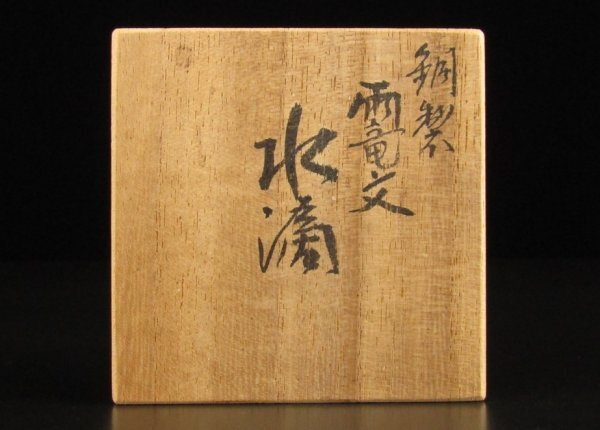 銅製
雨竜文
水滴